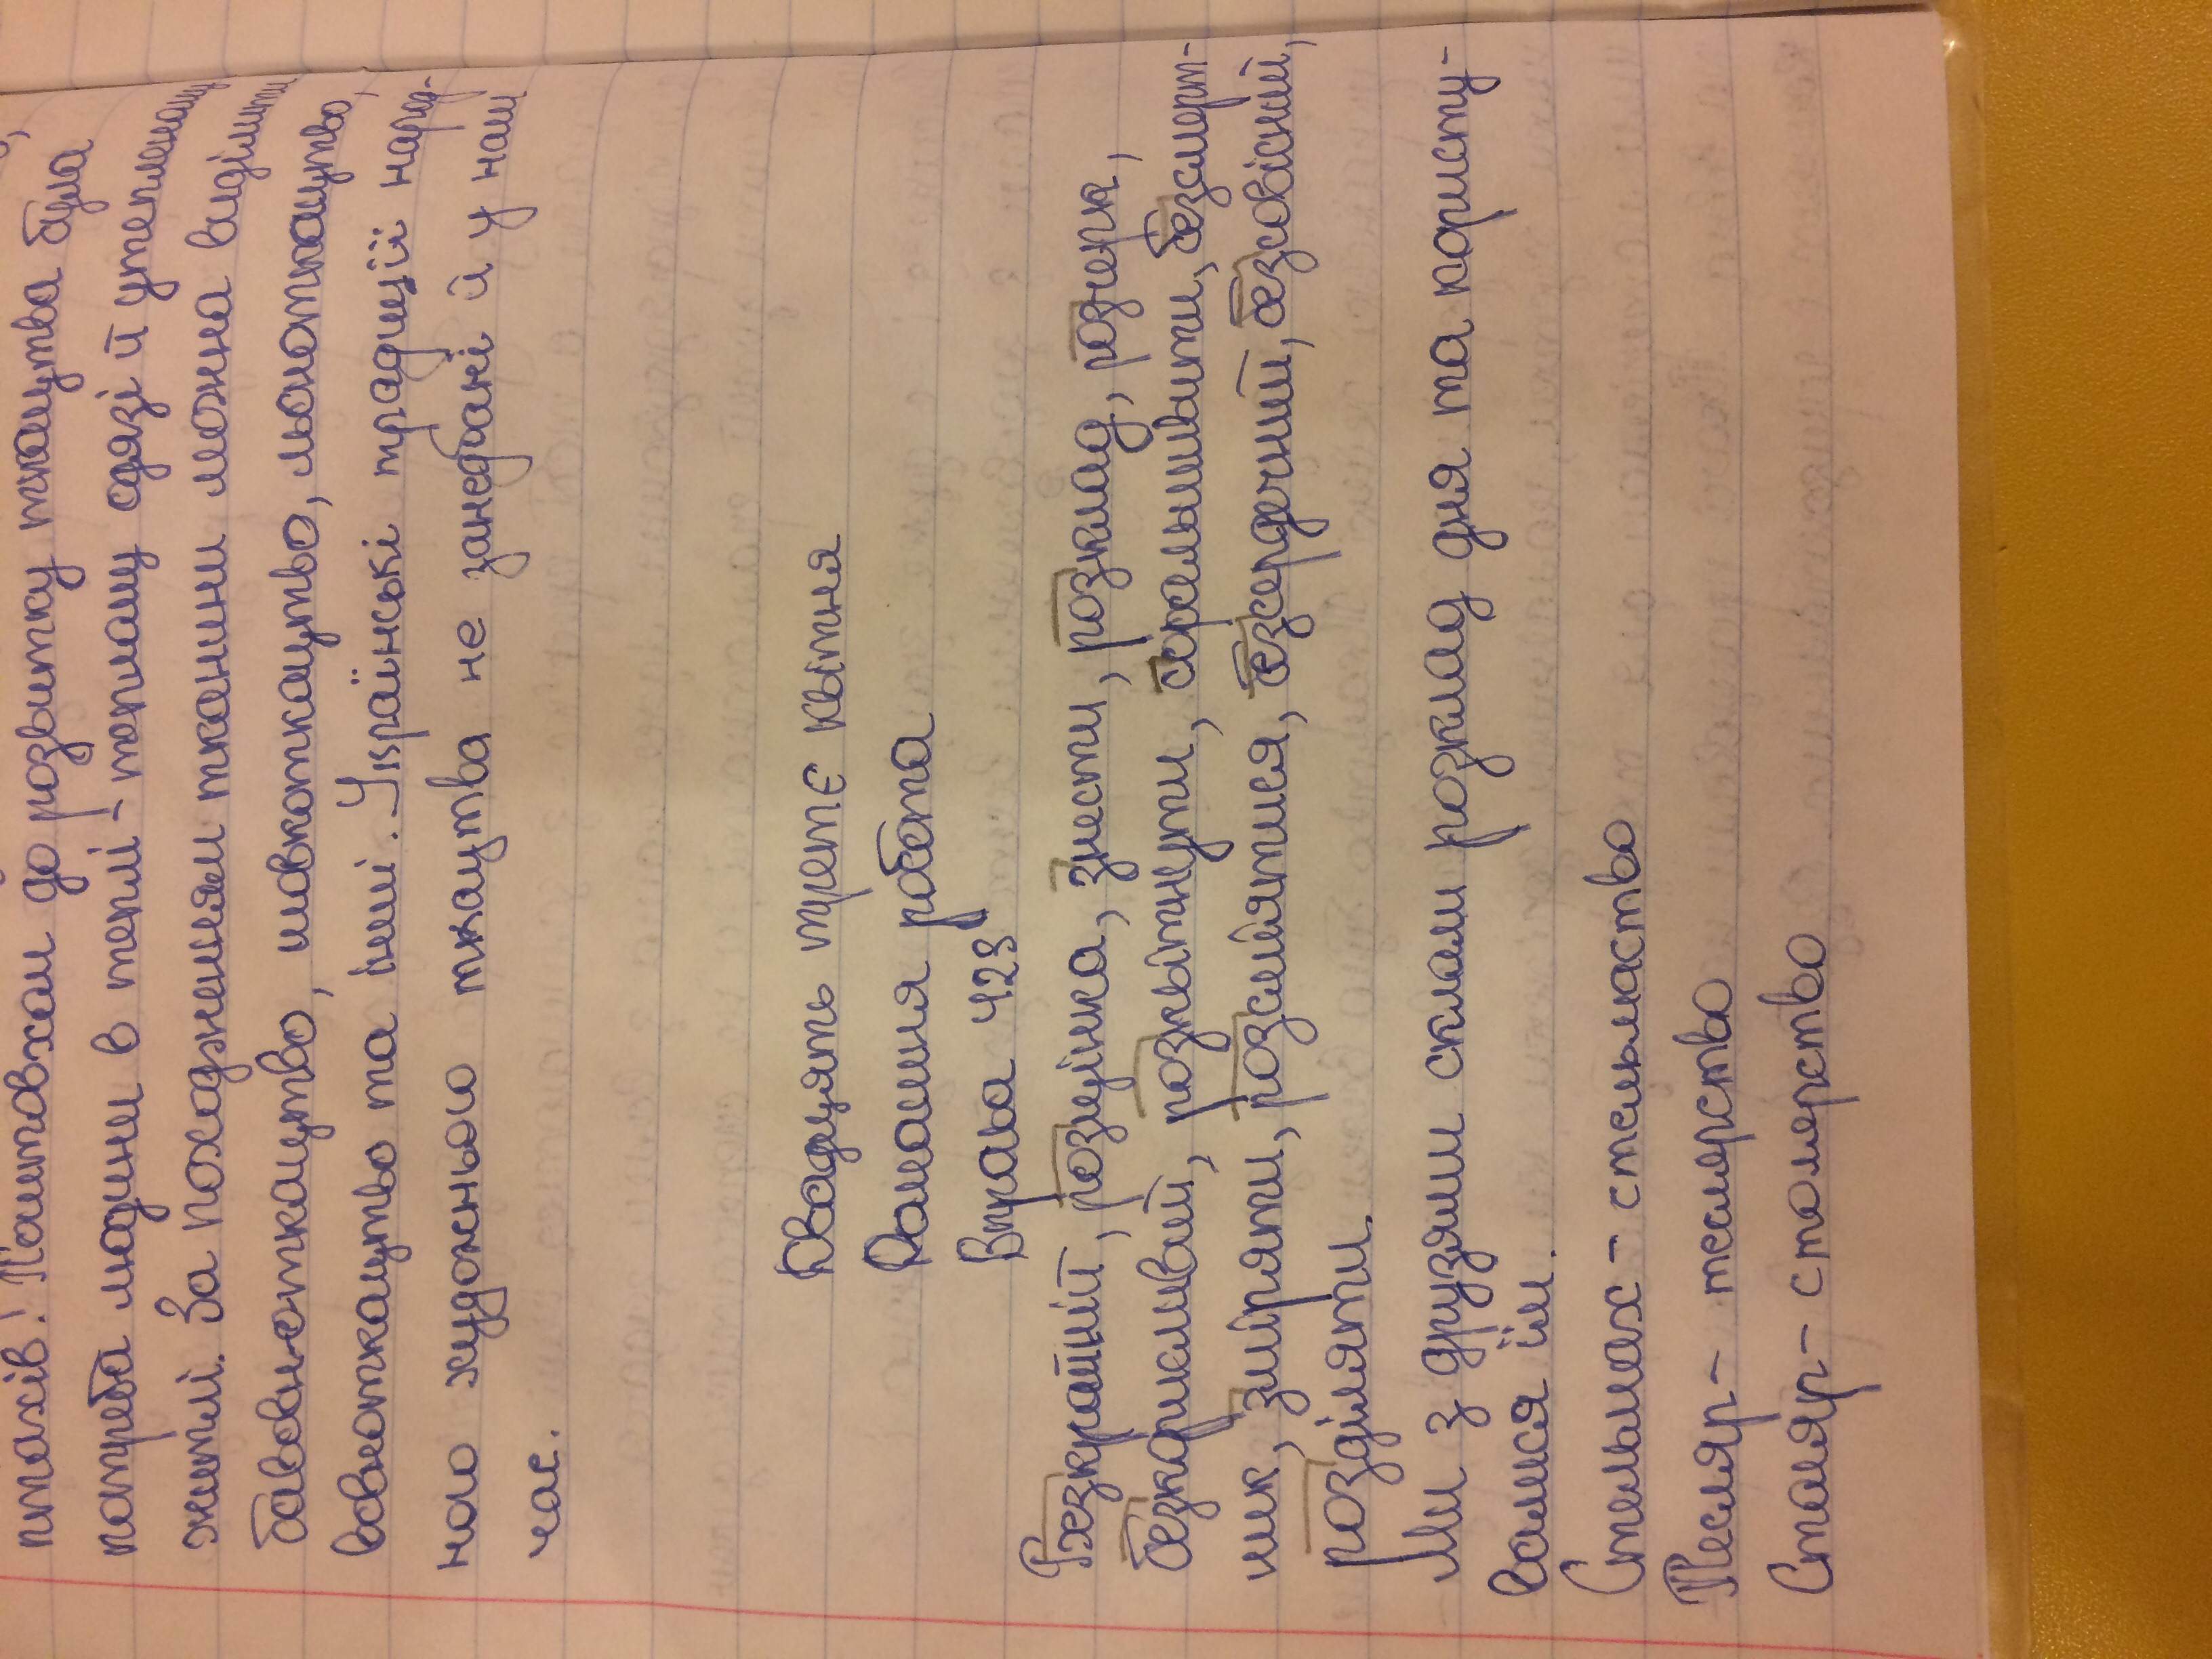 птахів! Поштовхом до розвитку ткацтва була
потреба людини в теплі - теплому одязі й утепленому
житлі. За походженням тканини можна виділити
бавовноткацтво, шовкоткацтво, льоноткацтво,
вовноткацтво та інші. Українські традиції народ-
ного художнього ткацтва не занедбані й у наш
час.
Двадцять третє квітня
Домашня робота
Вправа 423
Безкраїй, розцінка, знести, розклад, розчерк,
безкорисливий, розквітнути, сформувати, безсмерт-
ник, зміряти, розсміятися, безсердечний, безсовісний,
розділяти.
Ми з друзями склали розклад дня та користу-
валися їм.
Стельмах - стельмаство
Тесляр - теслярство
Столяр - столярство